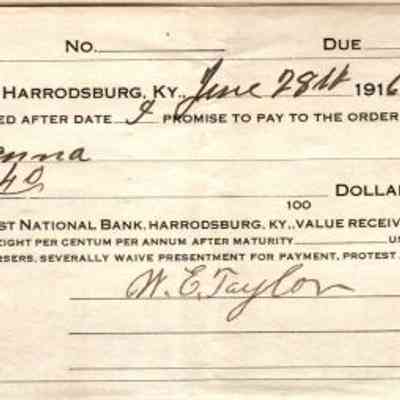 No. DUE
HARRODSBURG, KY., June 28th 1916
ED AFTER DATE I PROMISE TO PAY TO THE ORDER
enna
40
100 DOLLA
ST NATIONAL BANK, HARRODSBURG, KY., VALUE RECEIV
EIGHT PER CENTUM PER ANNUM AFTER MATURITY U
RSERS, SEVERALLY WAIVE PRESENTMENT FOR PAYMENT, PROTEST
W. E. Taylor